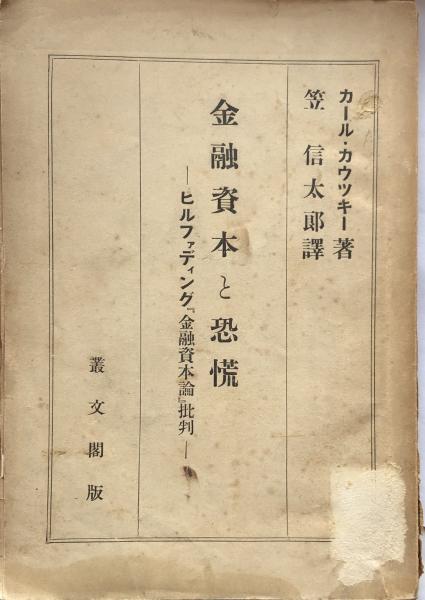 カール・カウツキー著
笠信太郎譯
金融資本と恐慌
―ヒルファディング『金融資本論』批判―
叢文閣版